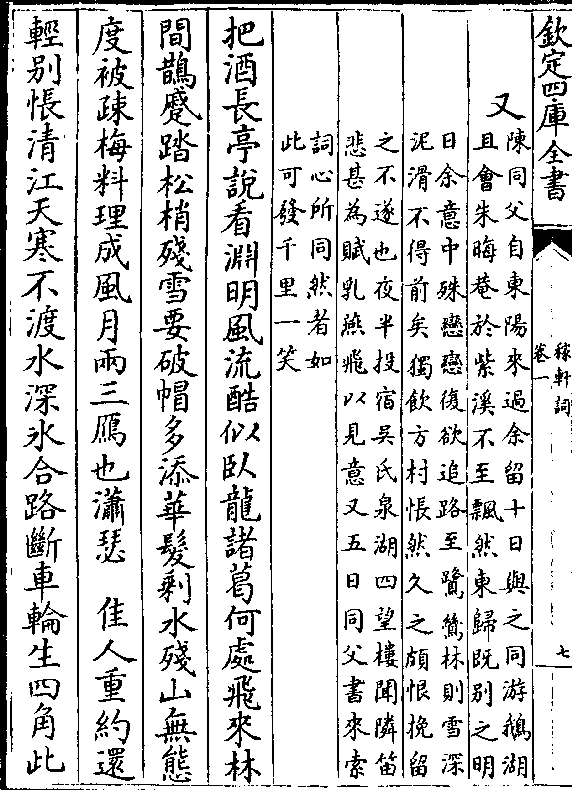 欽定四庫全書
稼軒詞
卷一
七
又
陳同父自東陽來過余留十日與之同游鵝湖
且會朱晦菴於紫溪不至飄然東歸既別之明
日余意中殊戀戀復欲追路至鷺鷥林則雪深
泥滑不得前矣獨飲方村悵然久之頗恨挽留
之不遂也夜半投宿吳氏泉湖四望樓聞隣笛
悲甚為賦乳燕飛以見意又五日同父書來索
詞心所同然者如
此可發千里一笑
把酒長亭說看淵明風流酷似臥龍諸葛何處飛來林
間鵲蹙踏松梢殘雪要破帽多添華髮剩水殘山無態
度被疎梅料理成風月兩三鴈也瀟瑟 佳人重約還
輕別悵清江天寒不渡水深氷合路斷車輪生四角此